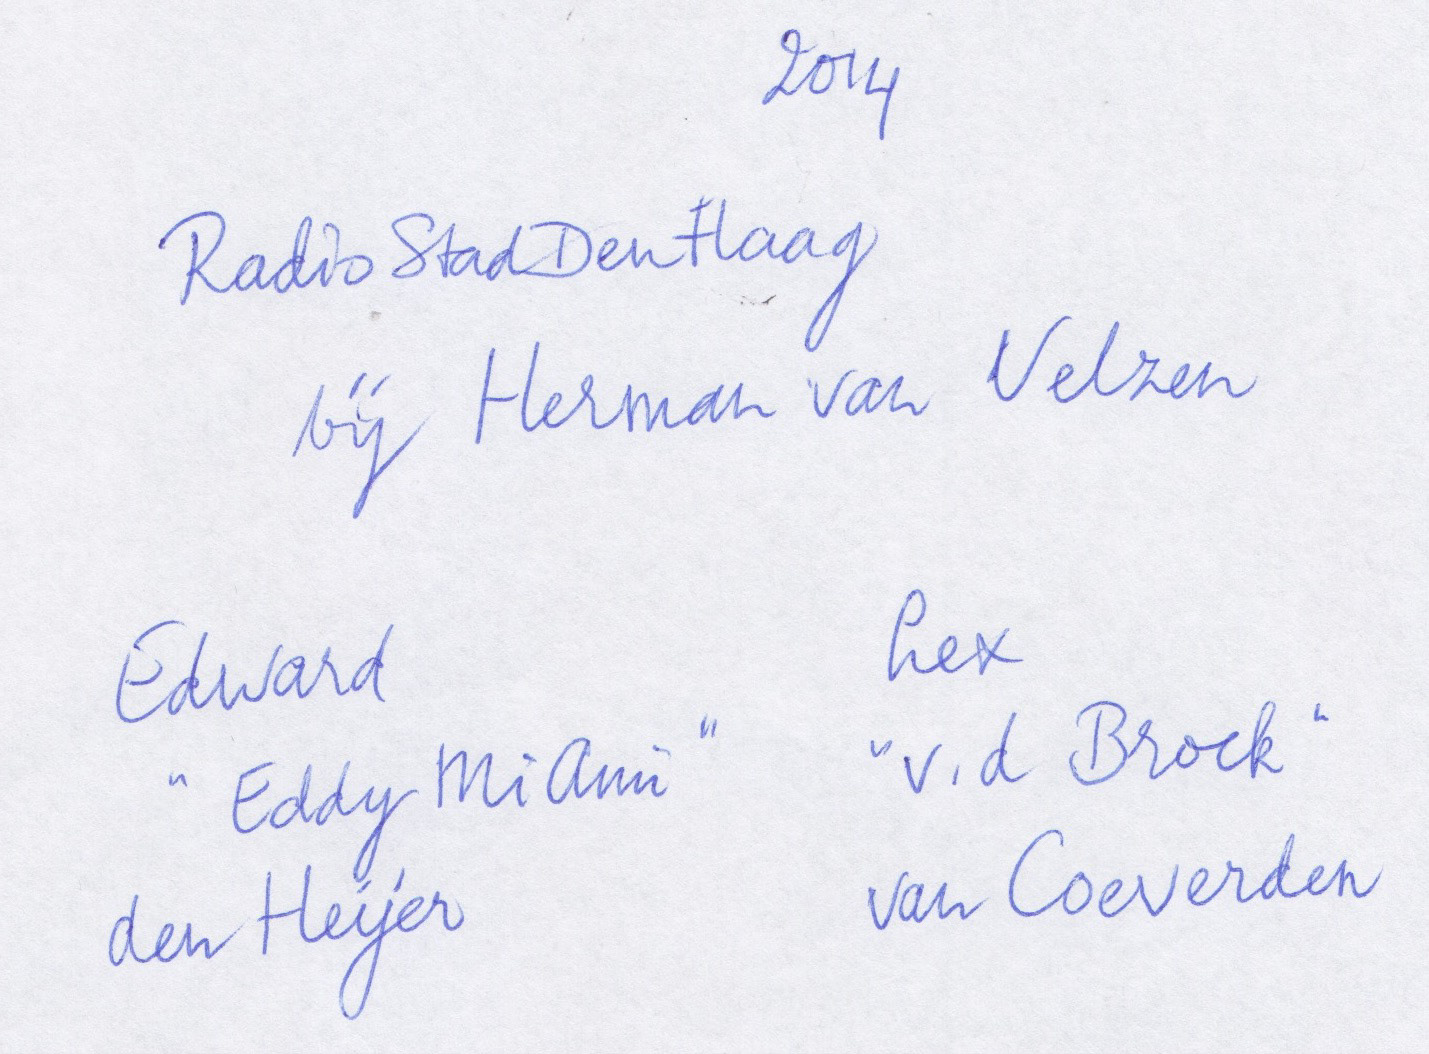 2014
Radio Stad Den Haag
bij Herman van Velzen
Edward
"Eddy MiAmi"
den Heijer
Lex
"v.d Broek"
van Coeverden